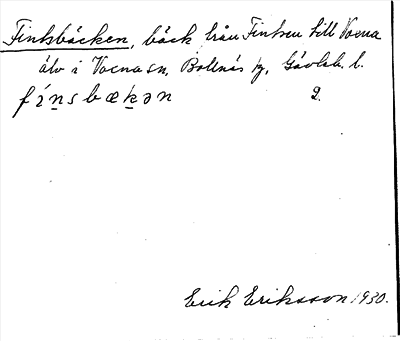 Finksbäcken, bäck från Finken till Vocna
älv i Vocna sn, Bollnäs tg, Gävleb. l.
fínsbækən 2.
Erik Eriksson 1930.